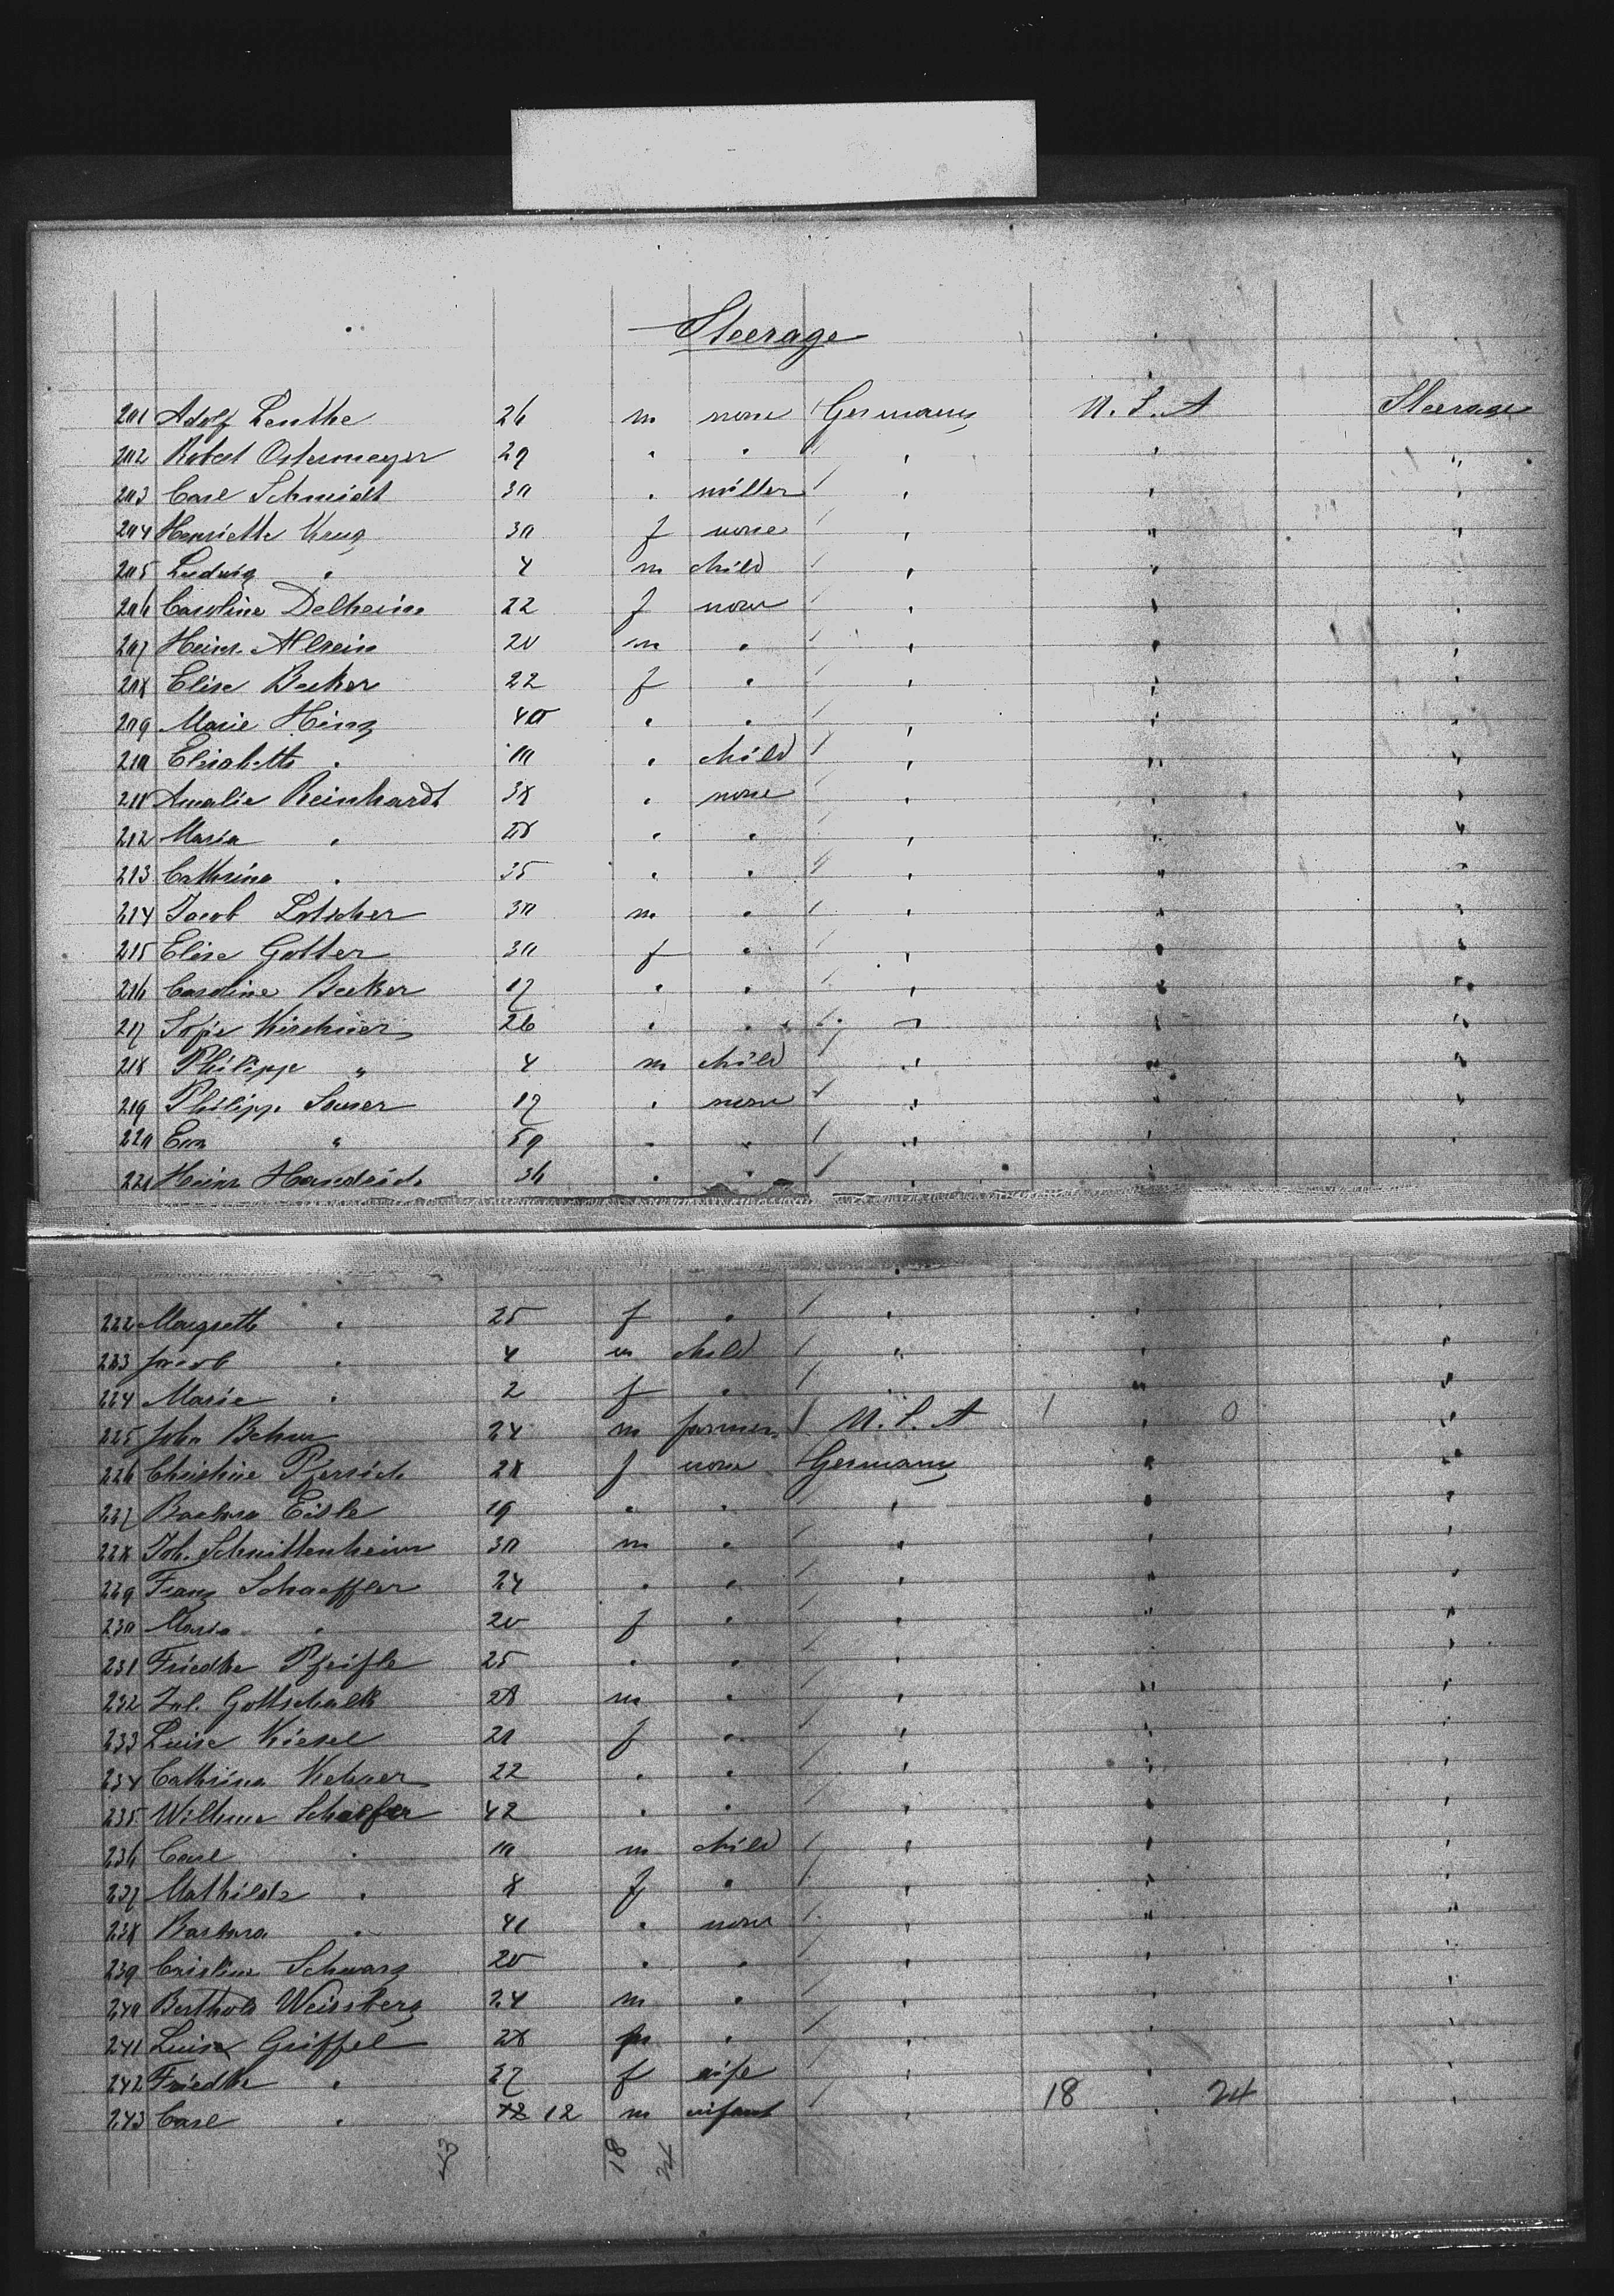 Steerage
201 Adolf Lenthe 26 m none Germany U.S.A Steerage
202 Robert Ostermeyer 29 " " " " "
203 Carl Schmidt 30 " miller " " "
204 Henriette Krug 30 f none " " "
205 Ludwig " 4 m child " " "
206 Caroline Delheim 22 f none " " "
207 Heinr. Allrein 20 m " " " "
208 Elise Becker 22 f " " " "
209 Marie Hinz 40 " " " " "
210 Elisabeth " 10 " child " " "
211 Amalie Reinhardt 38 " none " " "
212 Maria " 28 " " " " "
213 Cathrina " 35 " " " " "
214 Jacob Lotscher 30 m " " " "
215 Elise Gotter 30 f " " " "
216 Caroline Becker 17 " " " " "
217 Sofie Kirschner 26 " " " " "
218 Philipp " 4 m child " " "
219 Philipp Sauer 17 " none " " "
220 " 59 " " " " "
221 Heinr 36 " " " " "
222 Margreth " 25 f " " " "
223 Jacob " 4 m child " " "
224 Marie " 2 f " " " "
225 John 24 m farmer U.S.A 1 " 0 "
226 Christine Pfersich 28 f none Germany " "
227 Eisle 19 " " " " "
228 Joh. Schnittenheim 30 m " " " "
229 Franz Schaeffler 24 " " " " "
230 Maria " 20 f " " " "
231 Friedke Pfeifle 25 " " " " "
232 Jul. Gottschalk 28 m " " " "
233 Luise Kiesel 21 f " " " "
234 Cathrina 22 " " " " "
235 Wilhme Schaefer 42 " " " " "
236 Carl " 10 m child " " "
237 Mathilde " 8 f " " " "
238 Barbara " 41 " none " " "
239 Cristine Schwarz 20 " " " " "
240 Berthold Weissberg 24 m " " " "
241 Luise Griffel 28 m " " " "
242 Friedke " 27 f wife " " "
243 Carl " 12 m infant " 18 " 24 "
43 18 24